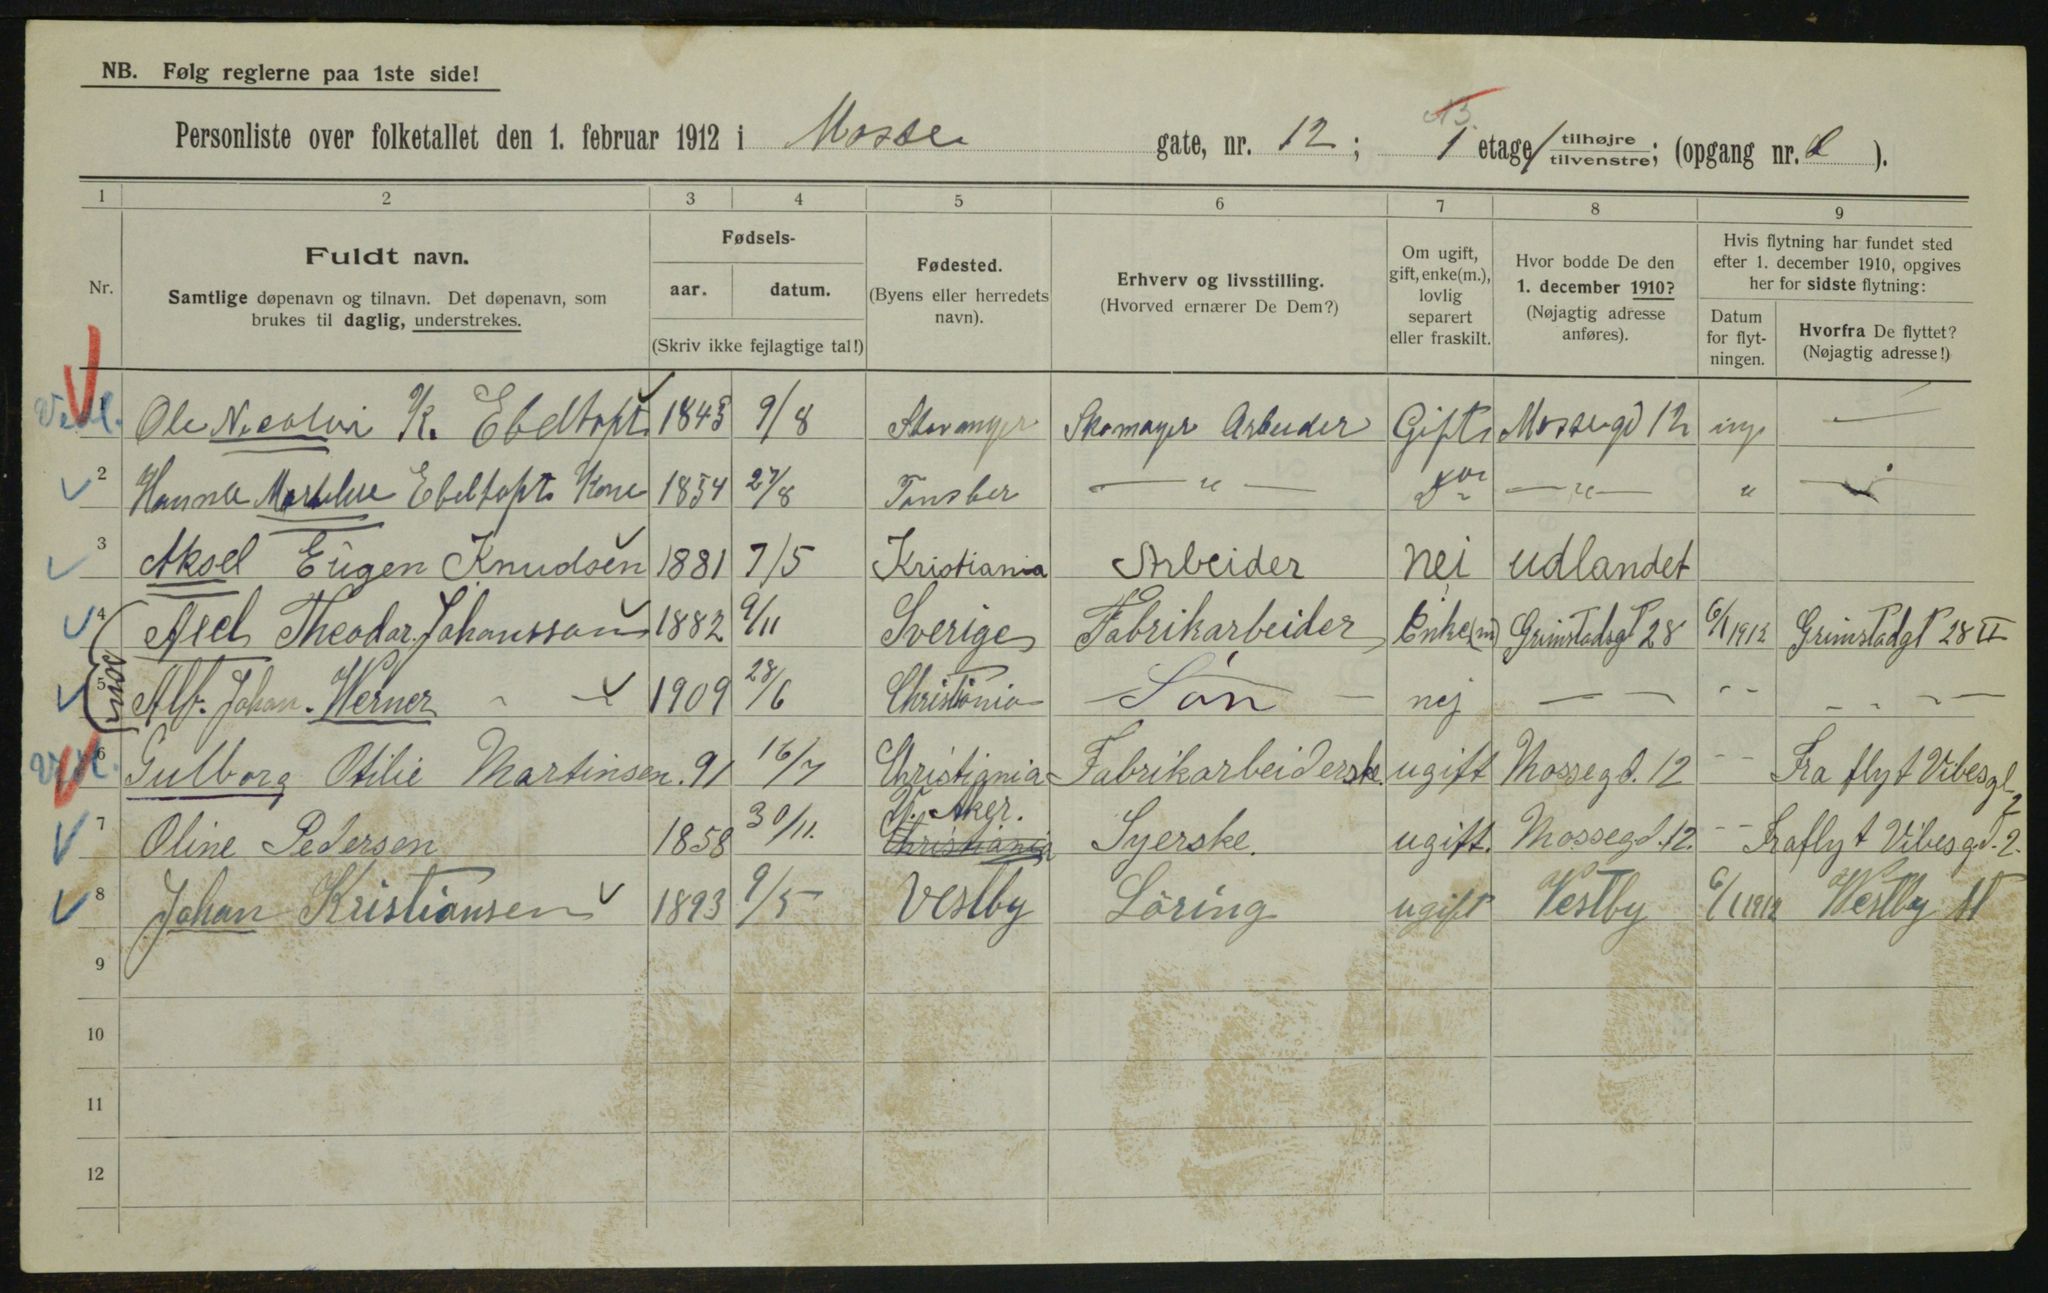 NB. Følg reglerne paa 1ste side!
Personliste over folketallet den 1. februar 1912 i Mosse gate, nr. 12; 1 etage / tilhøjre tilvenstre; (opgang nr. ).
1 2 3 4 5 6 7 8 9
Nr.
Fuldt navn.
Samtlige døpenavn og tilnavn. Det døpenavn, som
brukes til daglig, understrekes.
Fødsels-
aar. datum.
(Skriv ikke fejlagtige tal!)
Fødested.
(Byens eller herredets
navn).
Erhverv og livsstilling.
(Hvorved ernærer De Dem?)
Om ugift,
gift, enke(m.),
lovlig
separert
eller fraskilt.
Hvor bodde De den
1. december 1910?
(Nøjagtig adresse
anføres).
Hvis flytning har fundet sted
efter 1. december 1910, opgives
her for sidste flytning:
Datum
for flyt-
ningen.
Hvorfra De flyttet?
(Nøjagtig adresse!)
Ole Nicolai K. Ebeltoft 1843 9/8 Stavanger Skomager Arbeider Gift Mossegd 12 —
2 Hanna Ebeltoft Kone 1854 27/8 Tønsber — " — Do — " — "
3 Aksel Eugen Knudsen 1881 7/5 Kristiania Arbeider nei udlandet
4 Axel Theodor Johansson 1882 9/11 Sverige Fabrikarbeider Enke(m) Grimstadgt 28 6/1 1912 Grimstadgt 28 II
5 Alf. Johan. Werner 1909 28/6 Christiania — Søn — nej — — - - - - — —
6 Gulborg Otilie Martinsen. 91 16/7 Christiania Fabrikarbeiderske. ugift Mossegd. 12 - - Fra flyt Vibesgt 2
7 Oline Pedersen 1858 30/11. V. Aker. Christiania Syerske. ugift. Mossegd. 12. - - Fraflyt Vibesgd. 2.
8 Johan Kristiansen 1893 9/5 Vestby Löring ugift Vestby 6/1 1912 Vestby st
9
10
11
12